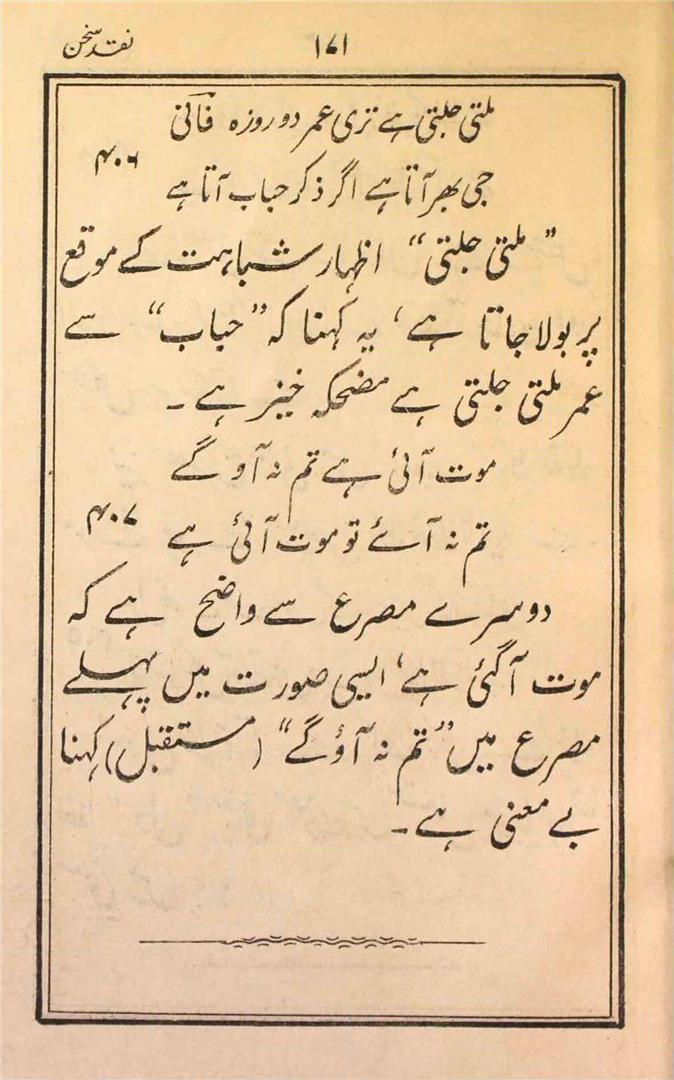 نقد سخن
۱۷۱
ملتی جلتی ہے تری عمر دو روزہ فانی
۴۰۶
جی بھر آتا ہے اگر ذکر حباب آتا ہے
”ملتی جلتی“ اظہار شباہت کے موقع
پر بولا جاتا ہے، یہ کہنا کہ ”حباب“ سے
عمر ملتی جلتی ہے مضحکہ خیز ہے ۔
موت آئی ہے تم نہ آو گے
۴۰۷
تم نہ آئے تو موت آئی ہے
دوسرے مصرع سے واضح ہے کہ
موت آگئی ہے، ایسی صورت میں پہلے
مصرع میں ”تم نہ آؤ گے“ (مستقبل) کہنا
بے معنی ہے ۔